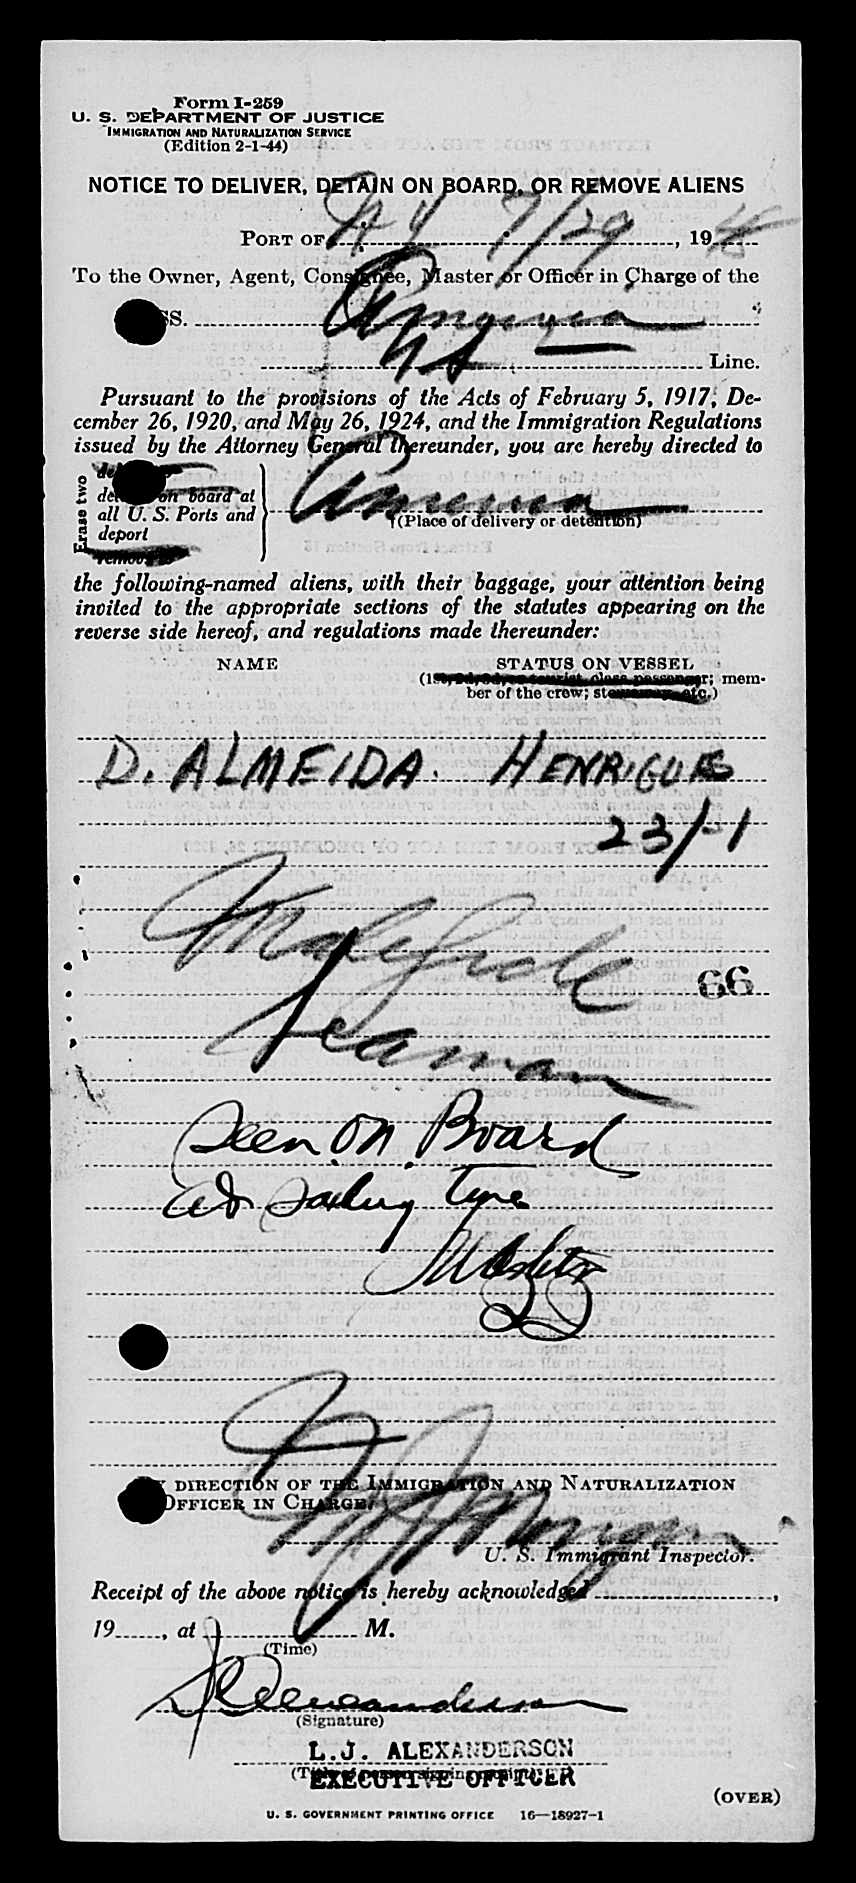 Form I-259
U. S. DEPARTMENT OF JUSTICE
IMMIGRATION AND NATURALIZATION SERVICE
(Edition 2-1-44)
NOTICE TO DELIVER, DETAIN ON BOARD, OR REMOVE ALIENS
PORT OF N Y 7/29, 19
To the Owner, Agent, Consignee, Master or Officer in Charge of the
SS.
Line.
Pursuant to the provisions of the Acts of February 5, 1917, De-
cember 26, 1920, and May 26, 1924, and the Immigration Regulations
issued by the Attorney General thereunder, you are hereby directed to
Erase two
on board at
all U. S. Ports and
deport
remove
(Place of delivery or detention)
the following-named aliens, with their baggage, your attention being
invited to the appropriate sections of the statutes appearing on the
reverse side hereof, and regulations made thereunder:
NAME STATUS ON VESSEL
(1st, 2d, 3d, or tourist class passenger; mem-
ber of the crew; stowaway, etc.)
D. ALMEIDA. HENRIGUES
23/-1
Malafide
66
Seaman
Seen on Board
at Sailing Time
BY DIRECTION OF THE IMMIGRATION AND NATURALIZATION
OFFICER IN CHARGE.
U. S. Immigrant Inspector.
Receipt of the above notice is hereby acknowledged,
19, at M.
(Time)
(Signature)
L.J. ALEXANDERSON
(Title of person signing receipt)
EXECUTIVE OFFICER
(OVER)
U. S. GOVERNMENT PRINTING OFFICE 16—18927-1